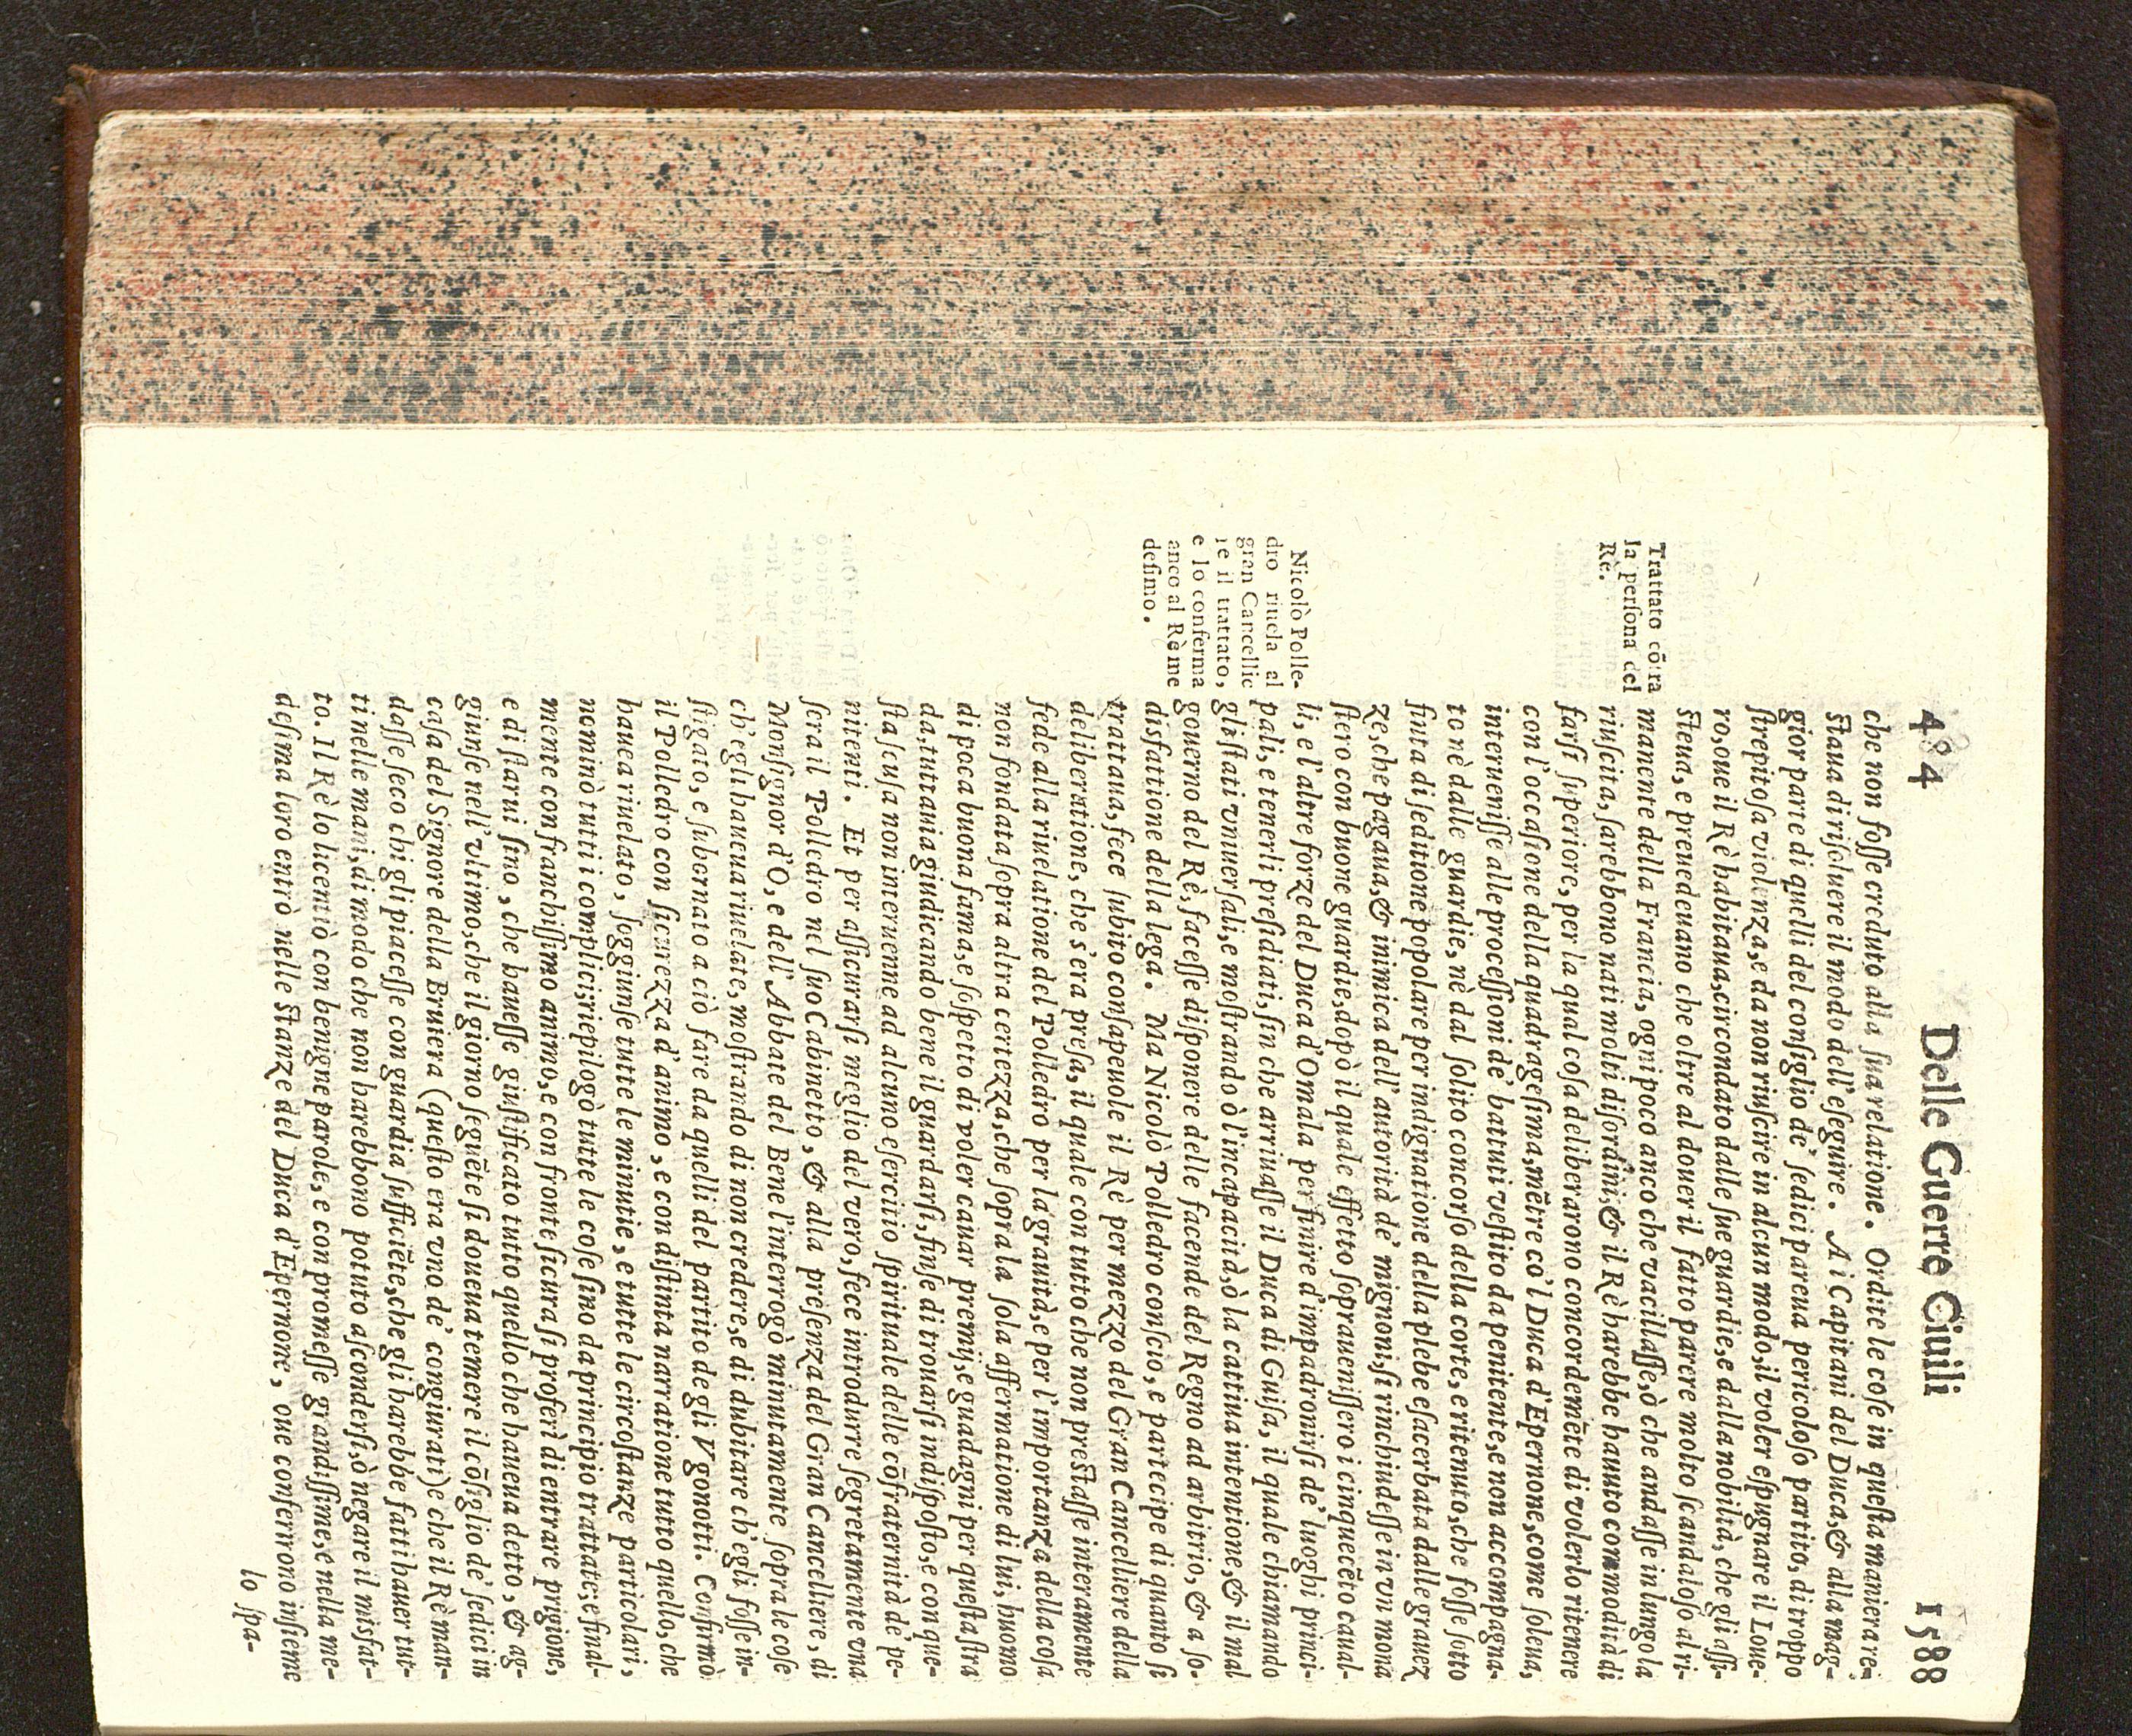 484 Delle Guerre Ciuili 1588
che non foſſe creduto alla ſua relatione. Ordite le coſe in queſta maniera re-
ſtaua di riſoluere il modo dell'eſeguire. A i Capitani del Duca,& alla mag-
gior parte di quelli del conſiglio de' ſedici pareua pericoloſo partito, di troppo
ſtrepitoſa violenza,e da non riuſcire in alcun modo,il voler eſpugnare il Loue-
ro,oue il Rè habitaua,circondato dalle ſue guardie,e dalla nobiltà, che gli aſſi-
ſteua, e preuedeuano che oltre al douer il fatto parere molto ſcandaloſo al ri-
manente della Francia, ogni poco anco che vacillaſſe,ò che andaſſe in lungo la
riuſcita, ſarebbono nati molti diſordini,& il Rè harebbe hauuto commodità di
farſi ſuperiore, per la qual coſa deliberarono concordemēte di volerlo ritenere
con l'occaſione della quadrageſima,mētre co'l Duca d'Epernone,come ſoleua,
interueniſſe alle proceſſioni de' battuti veſtito da penitente,e non accompagna-
to nè dalle guardie, nè dal ſolito concorſo della corte, e ritenuto,che foſſe ſotto
finta di ſeditione popolare per indignatione della plebe eſacerbata dalle grauez
ze,che pagaua,& inimica dell'autorità de' mignoni,ſi rinchiudeſſe in vn mona
ſtero con buone guardie,dopò il quale effetto ſopraueniſſero i cinquecēto caual-
li, e l'altre forze del Duca d'Omala per finire d'impadronirſi de' luoghi princi-
pali, e tenerli preſidiati, ſin che arriuaſſe il Duca di Guiſa, il quale chiamando
gli ſtati vniuerſali,e moſtrando ò l'incapacità,ò la cattiua intentione,& il mal
gouerno del Rè, faceſſe diſponere delle facende del Regno ad arbitrio, & a ſo-
disfattione della lega. Ma Nicolò Polledro conſcio, e partecipe di quanto ſi
trattaua, fece ſubito conſapeuole il Rè per mezzo del Gran Cancelliere della
deliberatione, che s'era preſa, il quale con tutto che non preſtaſſe interamente
fede alla riuelatione del Polledro per la grauità,e per l'importanza della coſa
non fondata ſopra altra certezza,che ſopra la ſola affermatione di lui, huomo
di poca buona fama,e ſoſpetto di voler cauar premij,e guadagni per queſta ſtra
da,tuttauia giudicando bene il guardarſi, finſe di trouarſi indiſpoſto,e con que-
ſta ſcuſa non interuenne ad alcuno eſercitio ſpirituale delle cōfraternità de' pe-
nitenti. Et per aſſicurarſi meglio del vero, fece introdurre ſegretamente vna
ſera il Polledro nel ſuo Cabinetto, & alla preſenza del Gran Cancelliere, di
Monſignor d'O, e dell'Abbate del Bene l'interrogò minutamente ſopra le coſe
ch'egli haueua riuelate, moſtrando di non credere,e di dubitare ch'egli foſſe in-
ſtigato, e ſubornato a ciò fare da quelli del partito degli Vgonotti. Confirmò
il Polledro con ſicurezza d'animo, e con diſtinta narratione tutto quello, che
hauea riuelato, ſoggiunſe tutte le minutie, e tutte le circoſtanze particolari,
nominò tutti i complici;riepilogò tutte le coſe ſino da principio trattate;e final-
mente con franchiſſimo animo,e con fronte ſicura ſi proferì di entrare prigione,
e di ſtarui ſino, che haueſſe giuſtificato tutto quello che haueua detto, & ag-
giunſe nell'vltimo,che il giorno ſeguēte ſi doueua temere il cōſiglio de' ſedici in
caſa del Signore della Bruiera (queſto era vno de' congiurati)e che il Rè man-
daſſe ſeco chi gli piaceſſe con guardia ſufficiēte,che gli harebbe fatti hauer tut-
ti nelle mani,di modo che non harebbono potuto aſconderſi,ò negare il misfat-
to. Il Rè lo licentiò con benigne parole, e con promeſſe grandiſſime,e nella me-
deſima loro entrò nelle ſtanze del Duca d'Epernone, oue conferirono inſieme
lo ſpa-
Trattato cōtra
la perſona del
Rè.
Nicolò Polle-
dro riuela al
gran Cancellie
re il trattato,
e lo conferma
anco al Rè me
deſimo.